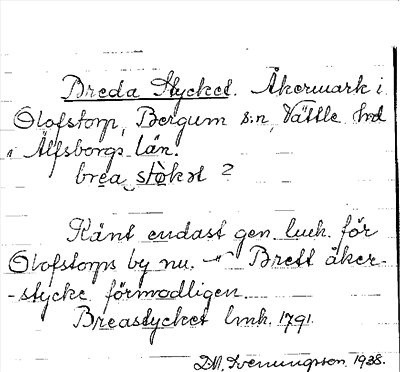 Breda Stycket. Åkermark i
Olofstorp, Bergum s:n, Vättle hd
i Älfsborgs län.
brea stòkət ?
Känt endast gen. lmk. för
Olofstorps by nu. -"- Brett åker-
-stycke förmodligen.
Breastycket lmk. 1791.
D.M. Svenungsson. 1938.